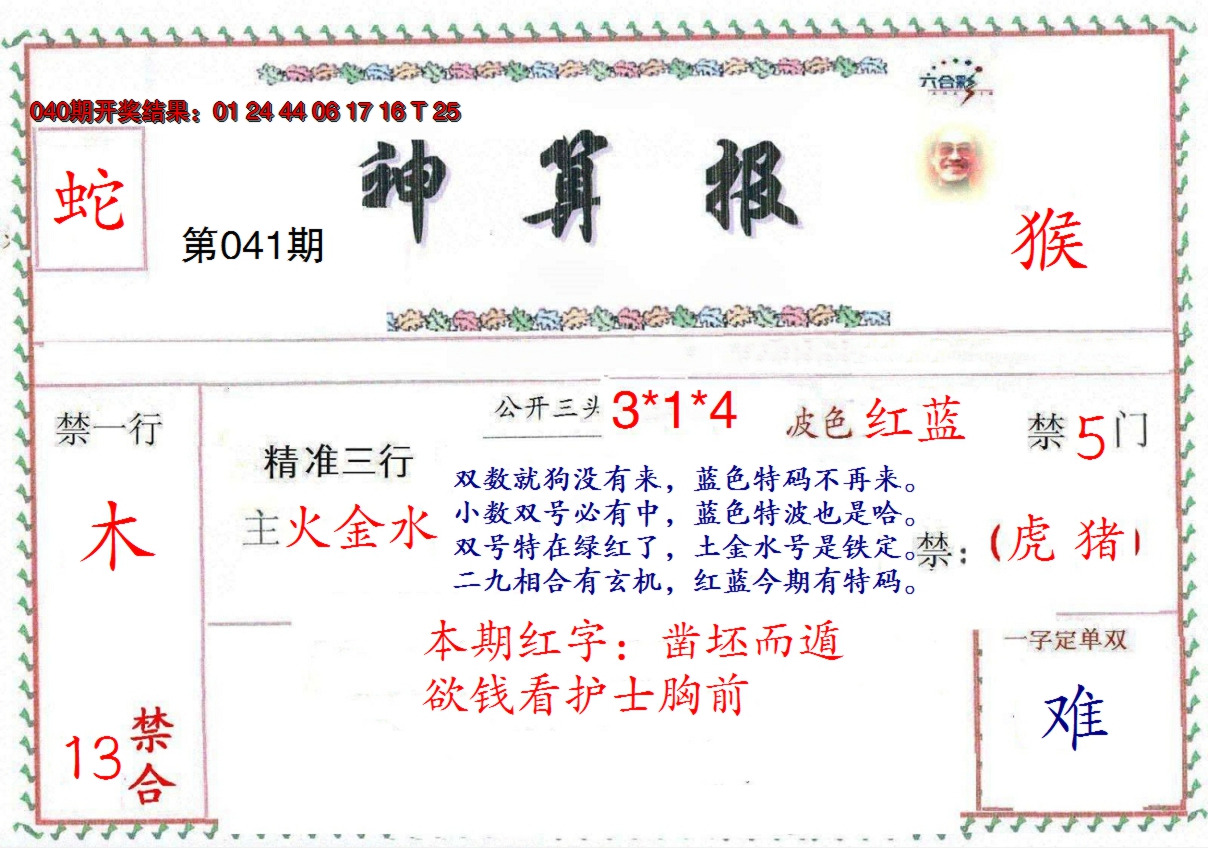 六合彩
040期开奖结果：01 24 44 06 17 16 T 25
神算报
蛇
第041期
猴
禁一行
木
13
禁合
精准三行
主火金水
公开三头 3*1*4
波色 红蓝
禁5门
双数就狗没有来，蓝色特码不再来。
小数双号必有中，蓝色特波也是哈。
双号特在绿红了，土金水号是铁定。
二九相合有玄机，红蓝今期有特码。
禁：（虎 猪）
本期红字：凿坯而遁
欲钱看护士胸前
一字定单双
难